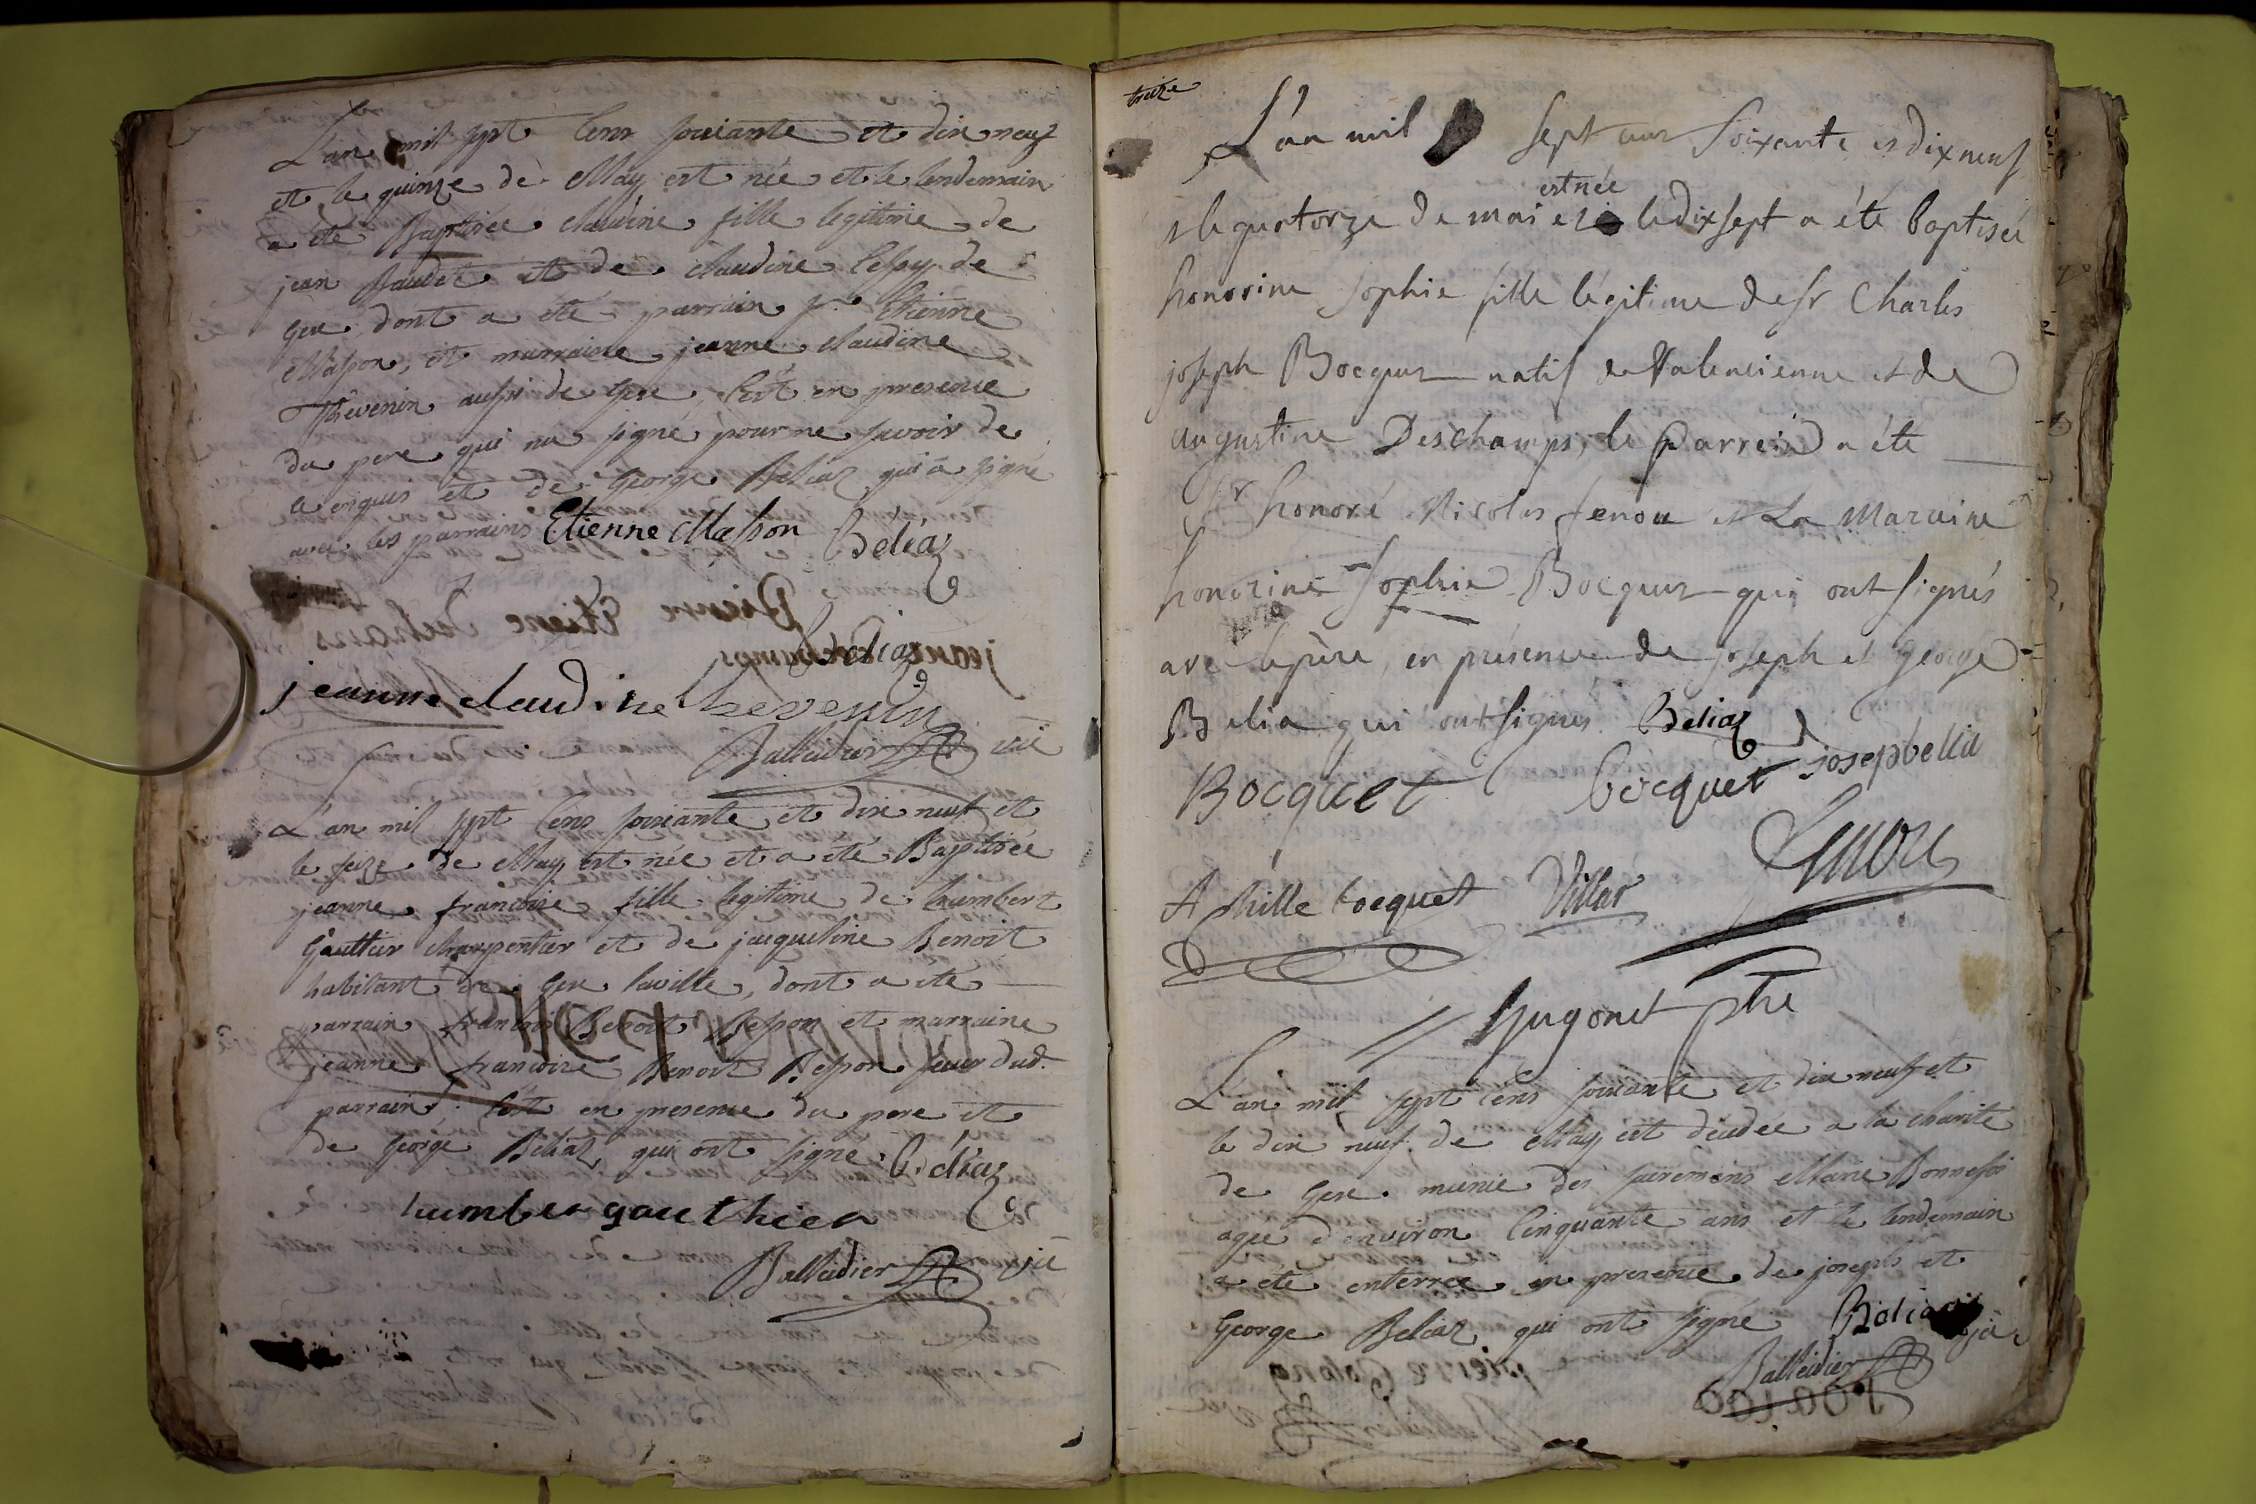 L'an mil sept cens soixante et dix neuf
et le quinze de May est née et le lendemain
a été Baptisée claudine fille legitime de
jean Baudet et de claudine
Gex dont a été parrain Etienne
Masson, et marraine jeanne claudine
Thevenin aussi de Gex, C'est en presence
du pere qui na signé pour ne savoir de
ce enquis et de George Beliaz qui a signé
avec les parrains Etienne Masson Béliaz
jeanne claudine thevenin
Balleidier vic
L'an mil sept cens soixante et dix neuf et
le seize de May est née et a été Baptisée
jeanne francoise fille legitime de humbert
Gauttier charpentier et de jacqueline Benoit
habitant de Gex laville, dont a été
parrain francois Benoit Besson et marraine
jeanne francoise Benoit Besson seur dud.
parrain. C'est en presence du pere et
de George Béliaz qui ont signé. Béliaz
humber gauthier
Balleidier vic
treize
L'an mil sept cens Soixante et dix neuf
& le quatorze de mai est née et le dix sept a été baptisée
honorine sophie fille légitime de sr Charles
joseph Bocquet natif de Valencienne et de
augustine Deschamps, le parrein a été
Sr honoré Nicolas fenou et La Maraine
honorine Sophie Bocquet qui ont signés
avec le père, en présence de joseph et george
Belia qui ont signés Beliaz
Bocquet bocquet josephbelia
Achille bocquet Villar fenou
Hugonet ptre
L'an mil sept cens soixante et dix neuf et
le dix neuf de May est décedée a la charité
de Gex munie des sacremens Marie Bonnefoi
agée d'environ Cinquante ans et le lendemain
a été enterrée en presence de joseph et
George Beliaz qui ont signé Beliaz
Balleidier vic